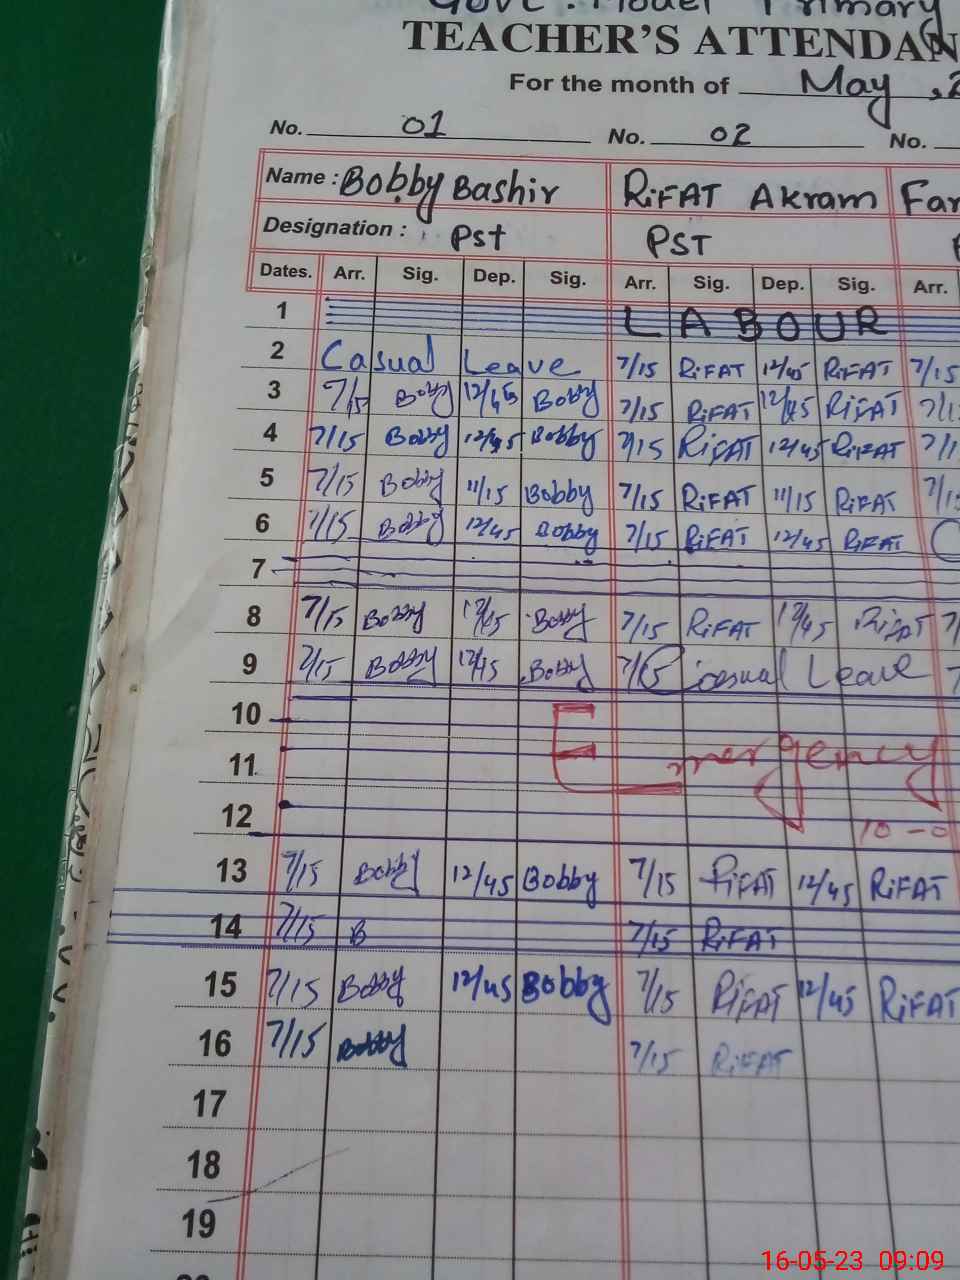 Govt. Model Primary
TEACHER'S ATTENDAN
For the month of May, 2
No. 01 No. 02 No.
Name : Bobby Bashir RiFAT Akram Far
Designation : Pst PST
Dates. Arr. Sig. Dep. Sig. Arr. Sig. Dep. Sig. Arr.
1 LABOUR
2 Casual Leave 7/15 RiFAT 12/45 RiFAT 7/15
3 7/15 Bobby 12/45 Bobby 7/15 RiFAT 12/45 RiFAT 7/1
4 7/15 Bobby 12/45 Bobby 7/15 RiFAT 12/45 RiFAT 7/1
5 7/15 Bobby 11/15 Bobby 7/15 RiFAT 11/15 RiFAT 7/15
6 7/15 Bobby 12/45 Bobby 7/15 RiFAT 12/45 RiFAT
7
8 7/15 Bobby 12/45 Bobby 7/15 RiFAT 12/45 RiFAT 7/
9 7/15 Bobby 12/45 Bobby 7/15 Casual Leave 7
10
11 Emergency
12 10-0
13 7/15 Bobby 12/45 Bobby 7/15 RiFAT 12/45 RiFAT
14 7/15 B 7/15 RiFAT
15 7/15 Bobby 12/45 Bobby 7/15 RiFAT 12/45 RiFAT
16 7/15 Bobby 7/15 RiFAT
17
18
19
16-05-23 09:09